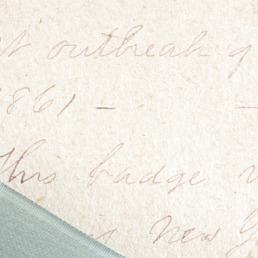 at outbreak of
1861 –  –
This badge
New Y